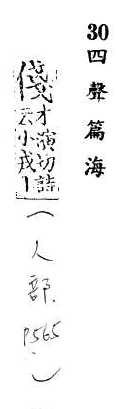 30四聲篇海
俴才演切詩
云小戎丨
(人部.
P565)